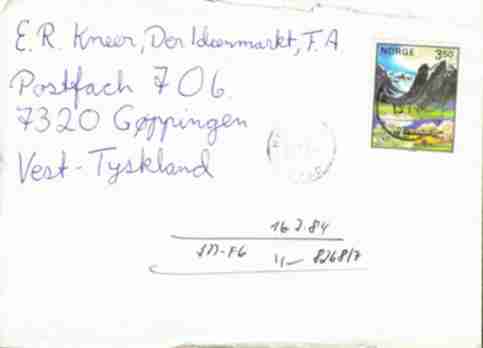 E. R. Kneer, Der Ideenmarkt, F.A
Postfach 706.
7320 Gøppingen
Vest-Tyskland
NORGE 350
16.7.84
8268/7